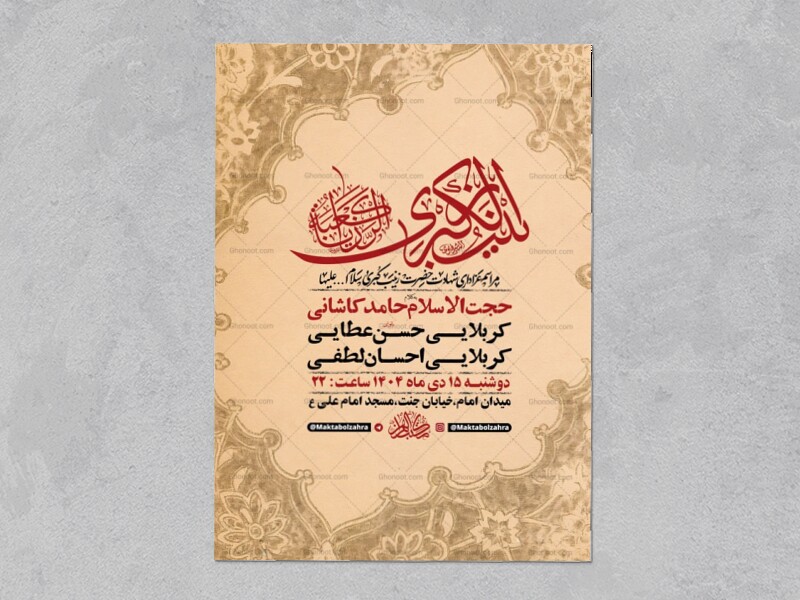 زینب کبری
مراسم عزاداری شهادت حضرت زینب کبری سلام ا... علیها
حجت الاسلام حامد کاشانی
کربلایی حسن عطایی
کربلایی احسان لطفی
دوشنبه ۱۵ دی ماه ۱۴۰۴ ساعت: ۲۲
میدان امام،خیابان جنت،مسجد امام علی ع
@Maktabolzahra @Maktabolzahra
Ghonoot.com